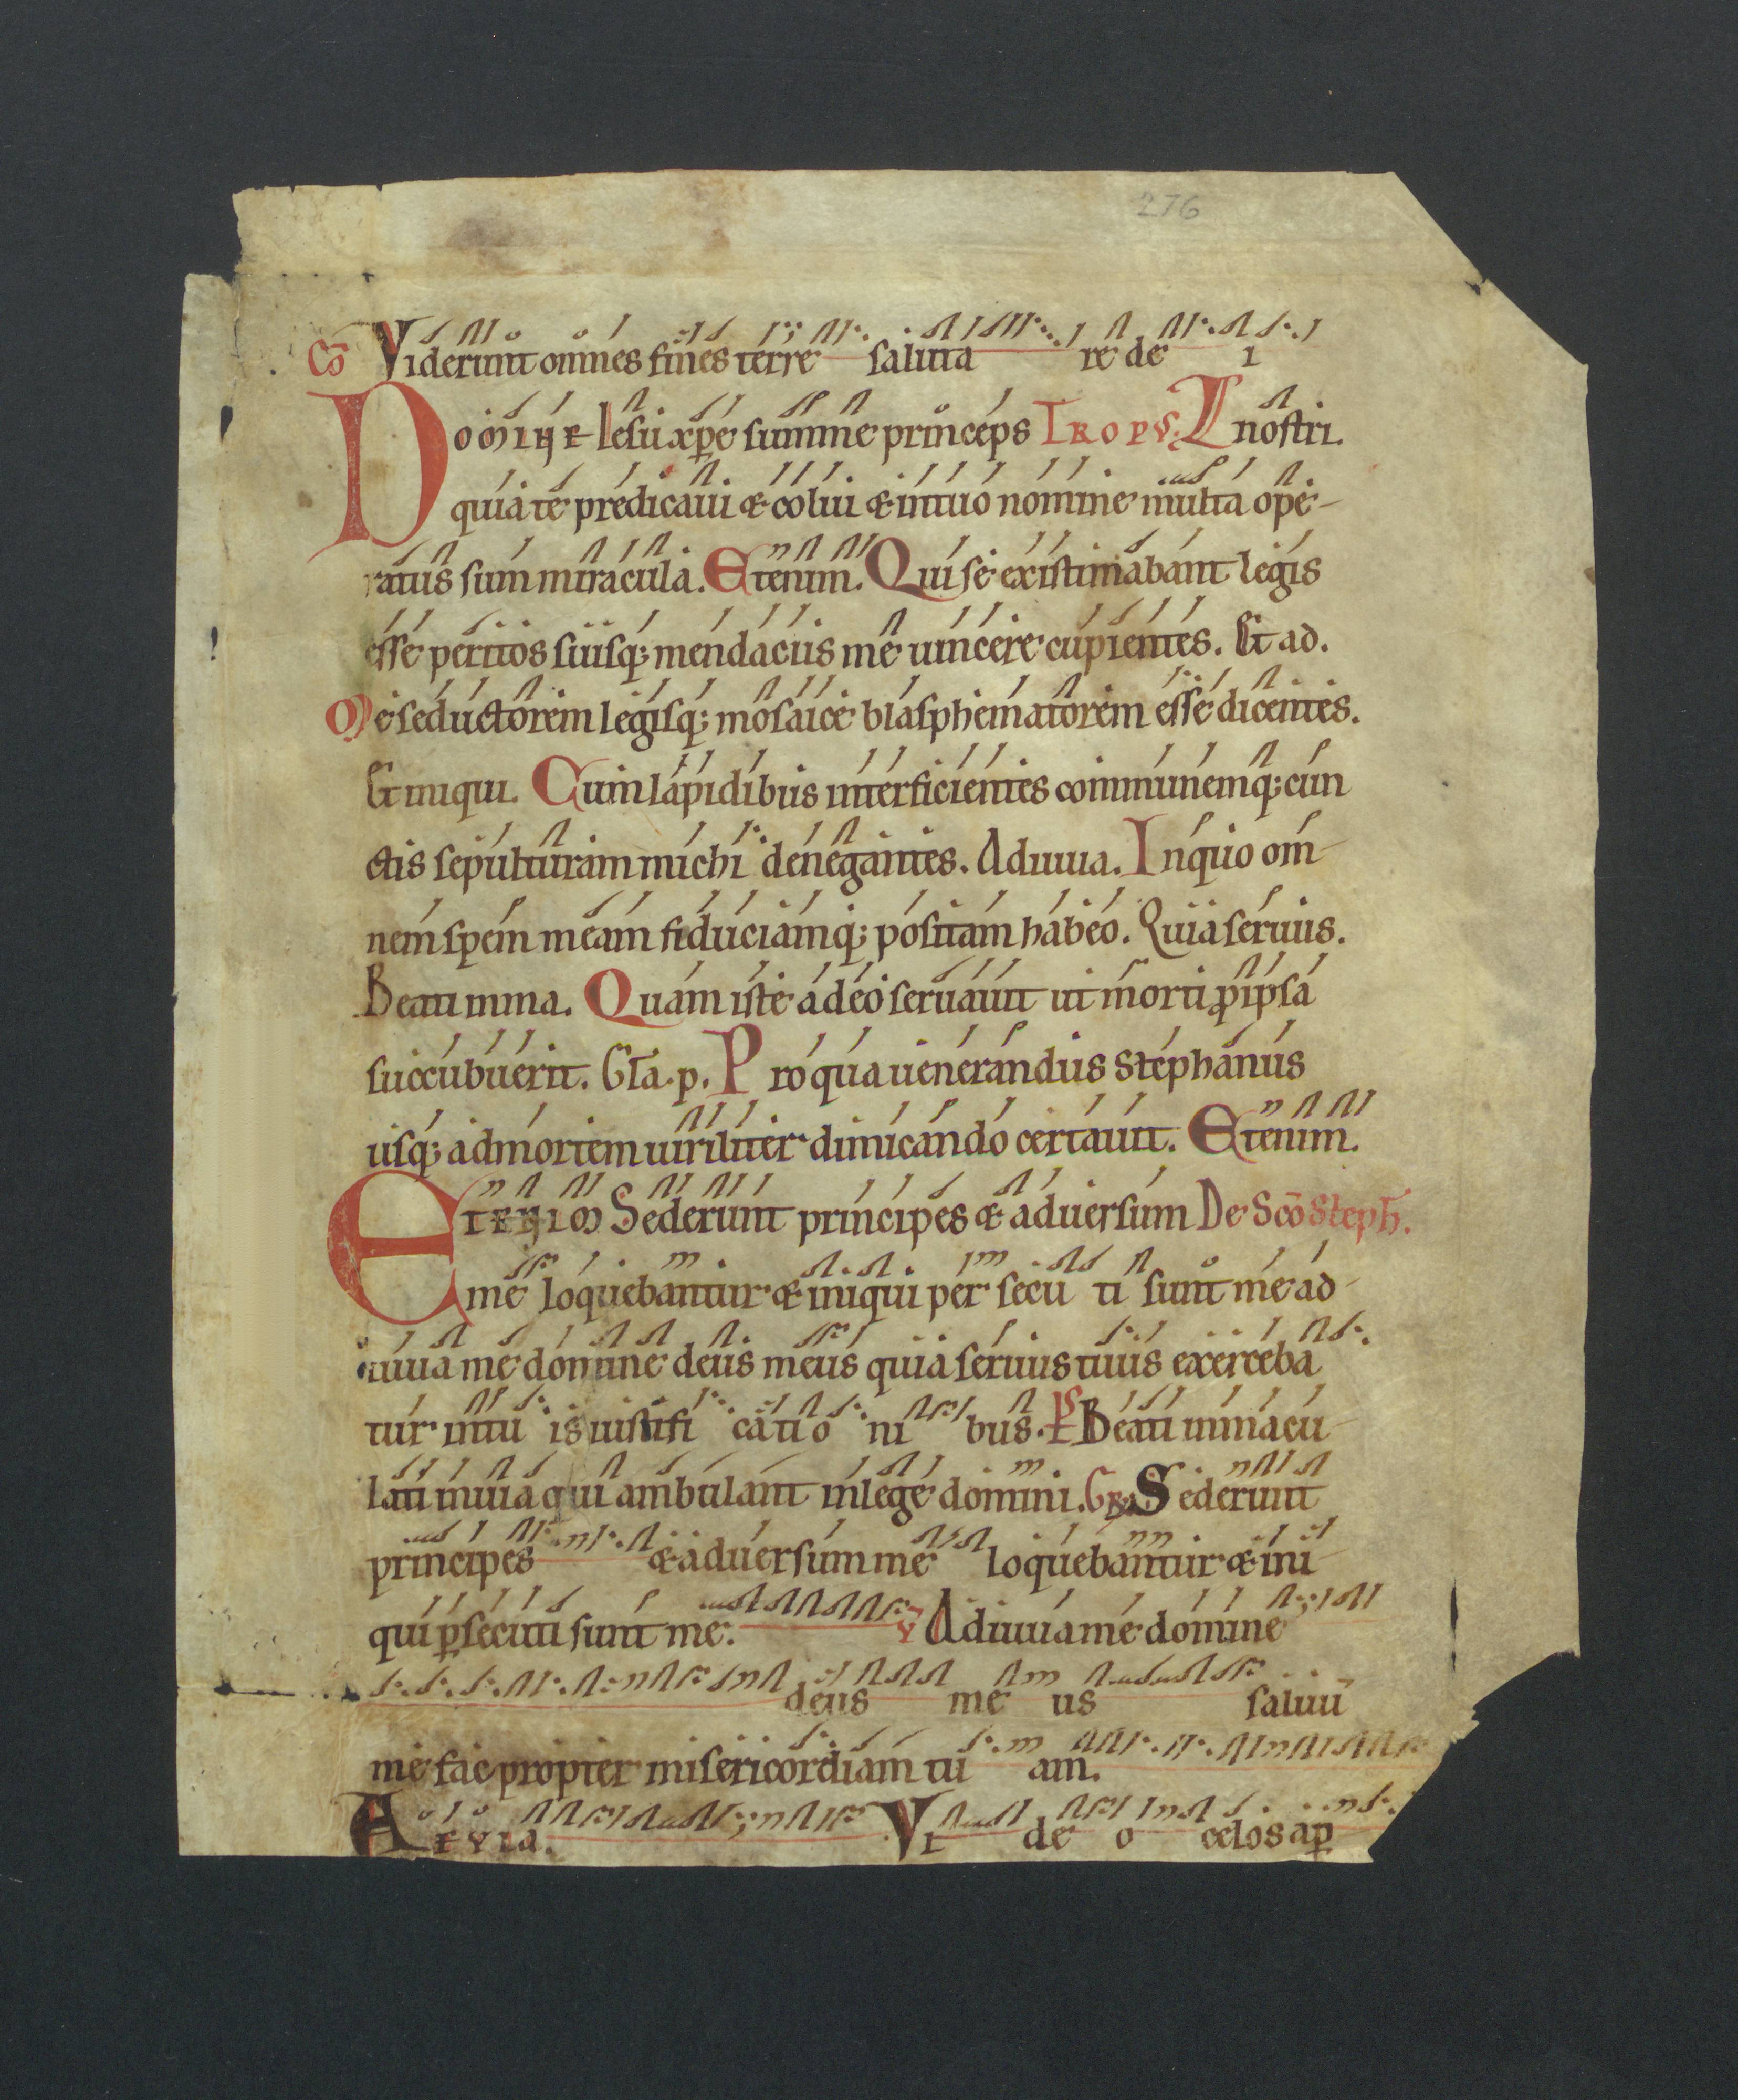 276
Cō Viderunt omnes fines terre saluta re de i
Domine Iesu xp̄e summe princeps TROPVS. nostri.
quia te predicaui & colui & in tuo nomine multa ope-
ratus sum miracula. Etenim. Qui se existimabant legis
esse peritos suisq; mendaciis me uincere cupientes. Et ad.
Me seductorem legisq; mosaice blasphematorem esse dicentes.
Et iniqui. Cum lapidibus interficientes communemq; cun
ctis sepulturam michi denegantes. Adiuua. In quo om-
nem spem meam fiduciamq; positam habeo. Quia seruus.
Beati inma. Quam iste adeo seruauit ut morti ꝓ ipsa
succubuerit. Gl̄a. p. Pro qua uenerandus Stephanus
usq; ad mortem uiriliter dimicando certauit. Etenim.
ETENIM Sederunt principes & aduersum De Scō Steph̄.
me loquebantur & iniqui per secu ti sunt me ad-
iuua me domine deus meus quia seruus tuus exerceba
tur in tu is iustifi cati o ni bus. Ps Beati inmacu-
lati in uia qui ambulant in lege domini. Gr. Sederunt
principes & aduersum me loquebantur & ini-
qui ꝑsecuti sunt me. V Adiuua me domine
deus me us saluū
me fac propter misericordiam tu am.
AEVIA. Vi de o celos aꝑ